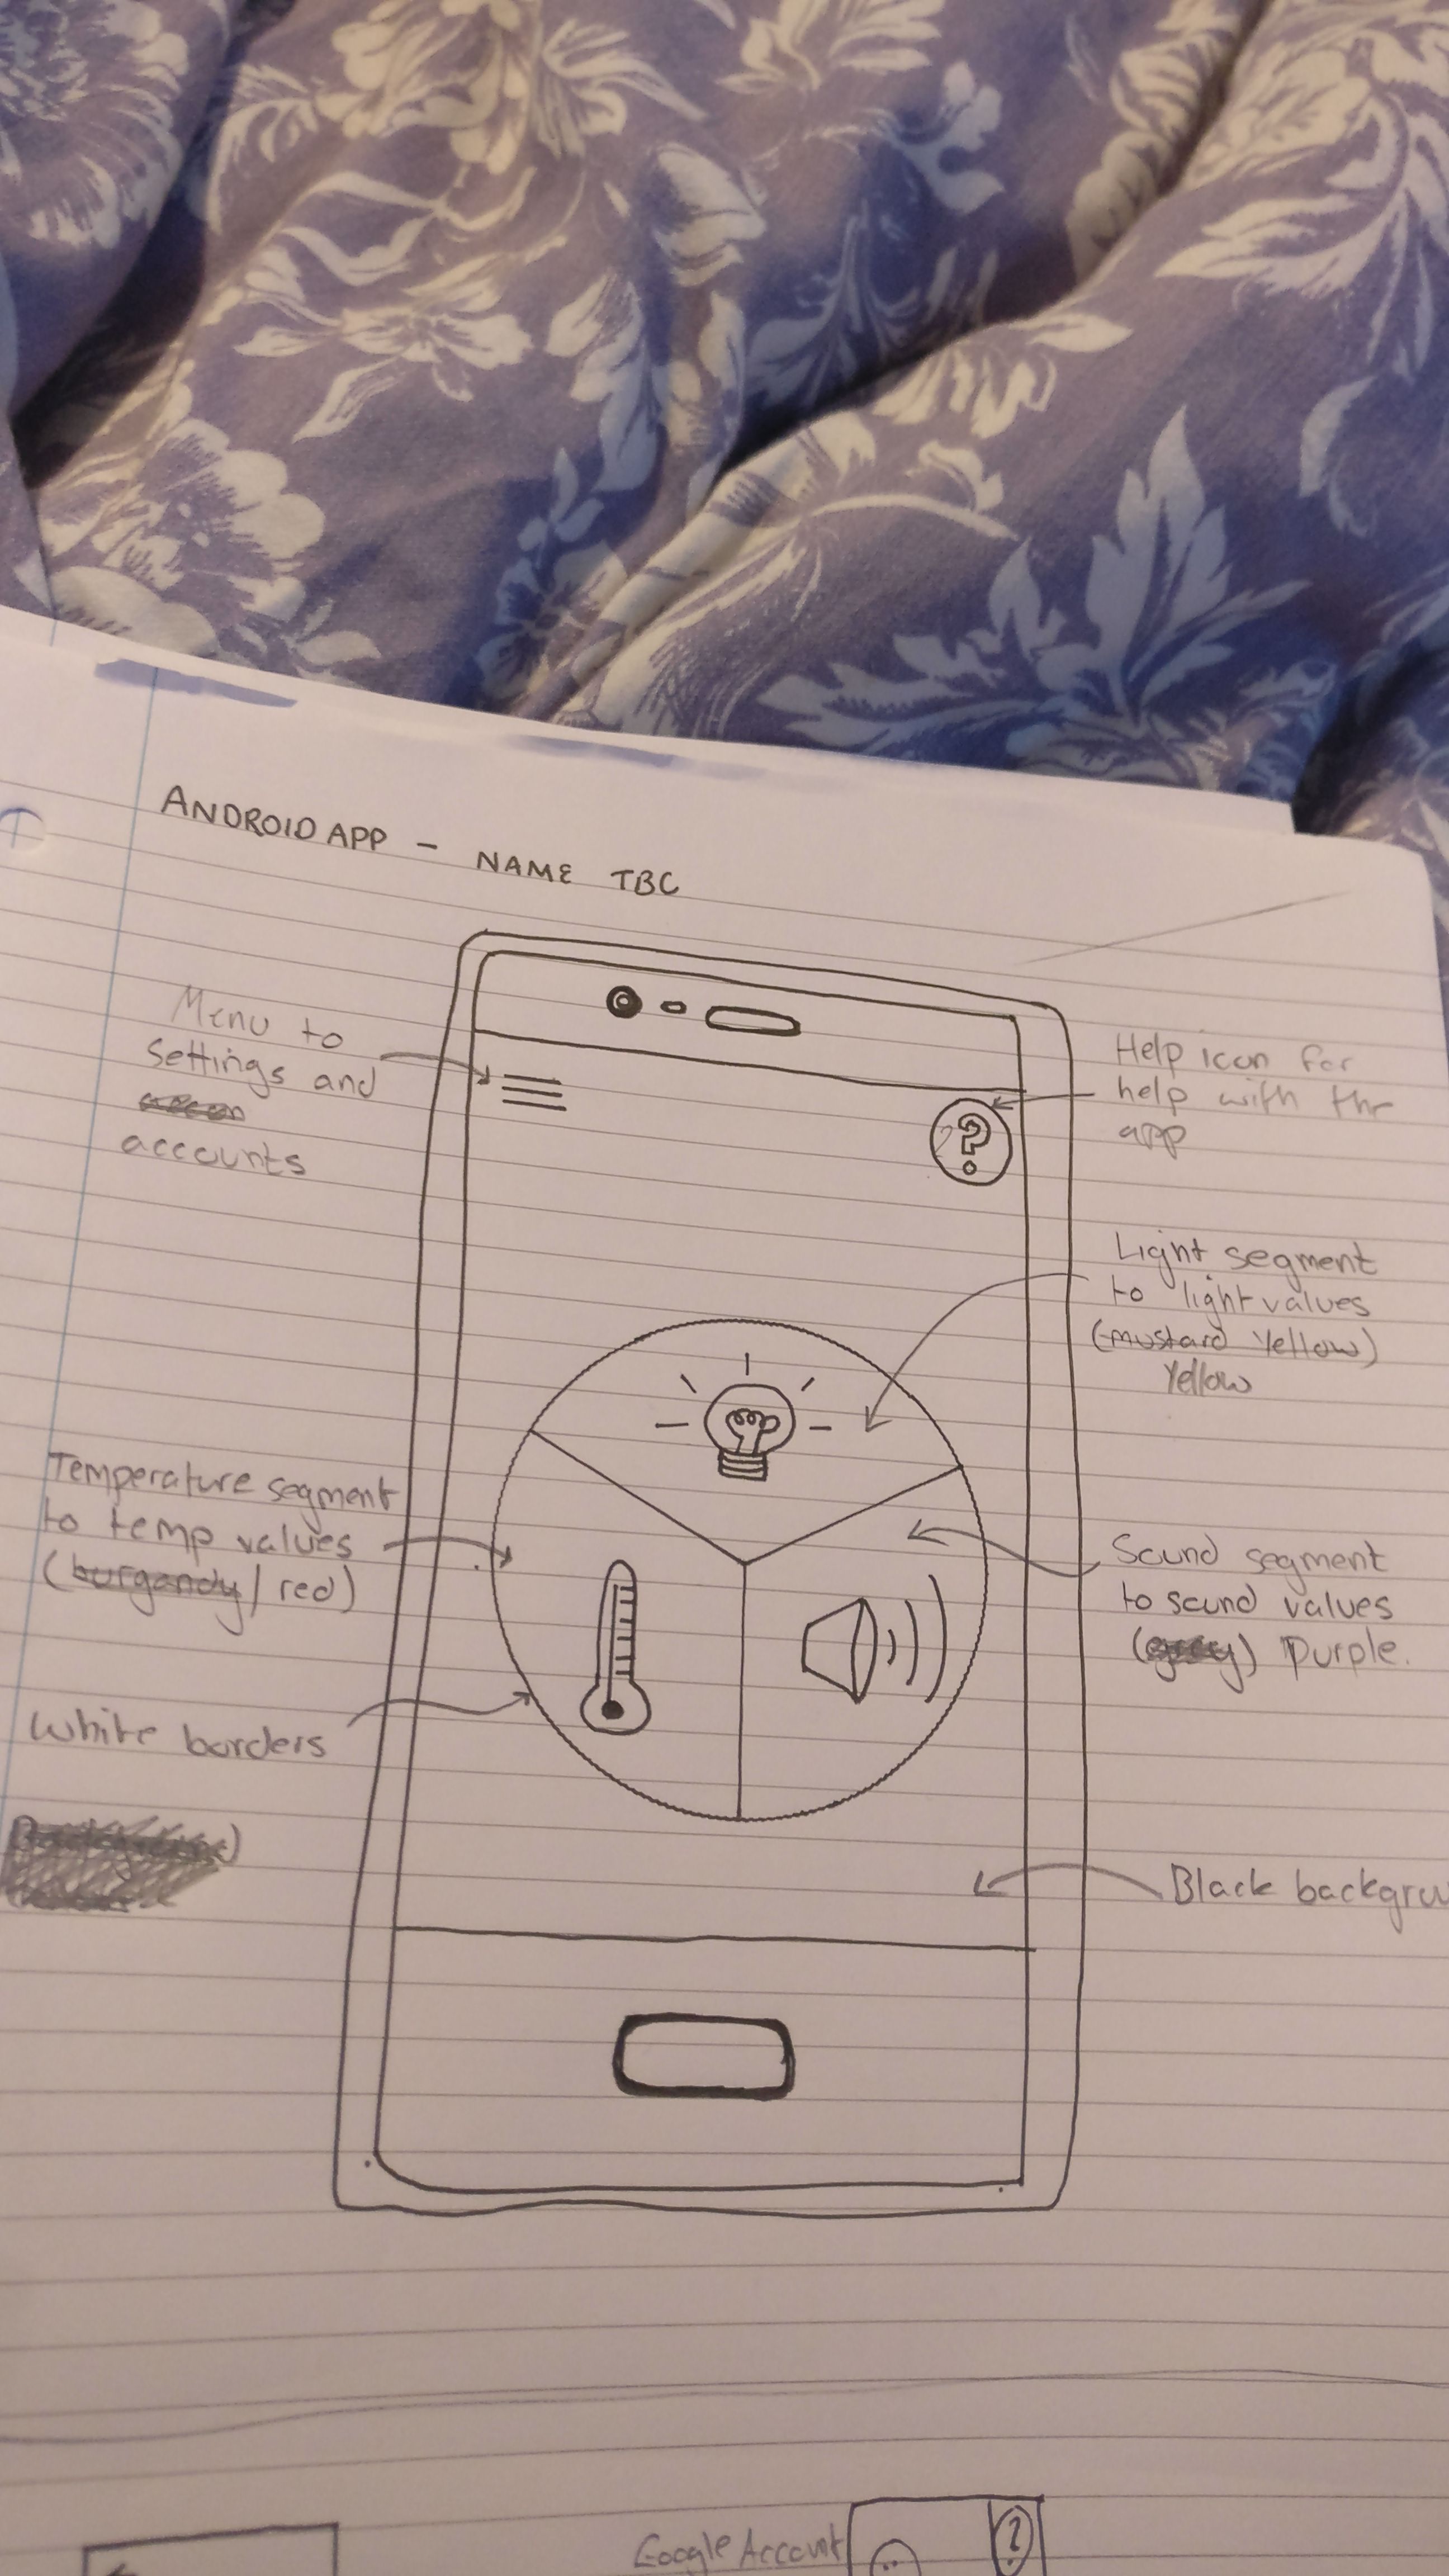 ANDROID APP - NAME TBC
Menu to
settings and
accounts
Help icon for
help with the
app
?
Light segment
to light values
(mustard Yellow)
Yellow
Temperature segment
to temp values
(burgandy/red)
Sound segment
to sound values
(grey) Purple.
White borders
Black backgrou
Google Account
?